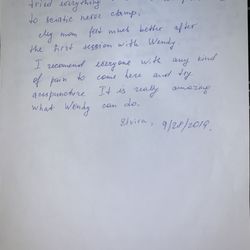 tried everything
to sciatic nerve clamp.
My mom felt much better after
the first session with Wendy.
I recomend everyone with any kind
of pain to come here and try
acupuncture. It is really amazing
what Wendy can do.
Elvira, 9/28/2019.